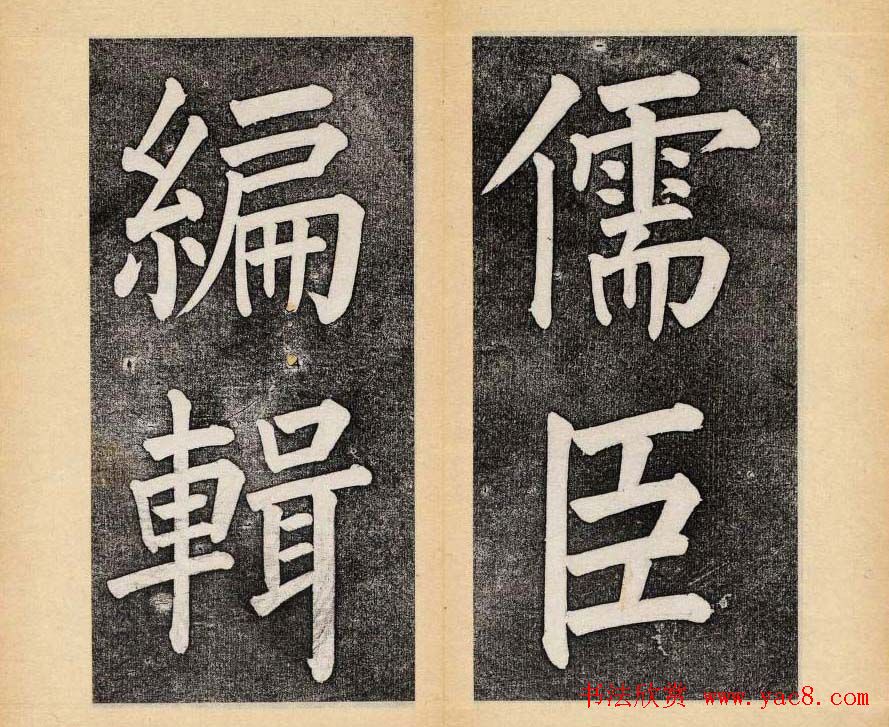 儒臣
編輯
书法欣赏 www.yac8.com